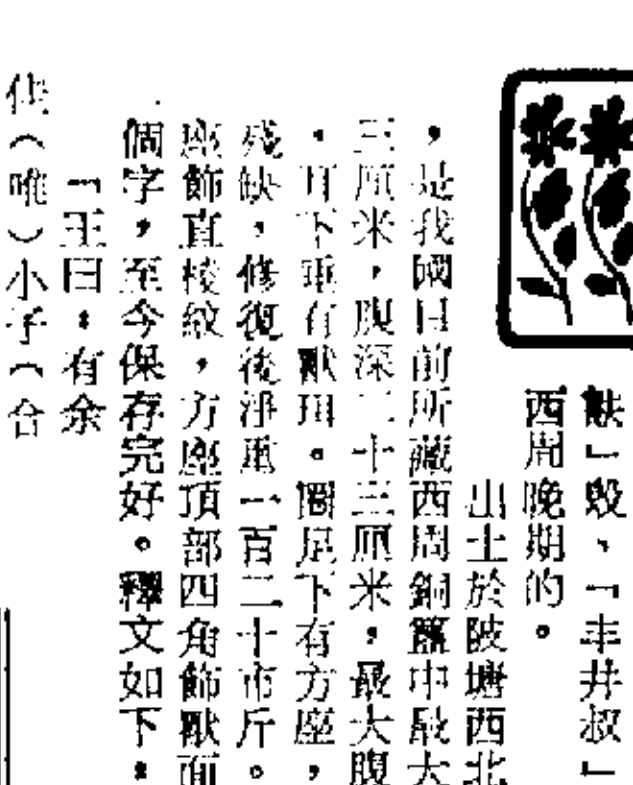 㝬」毁、「丰井叔」
西周晚期的。
出土於陂塘西北
，是我國目前所藏西周銅簋中最大
三厘米，腹深二十三厘米，最大腹
，耳下垂有獸珥。圈足下有方座，
殘缺，修復後淨重一百二十市斤。
座飾直棱紋，方座頂部四角飾獸面
個字，至今保存完好。釋文如下：
「王曰：有余
隹（唯）小子（合